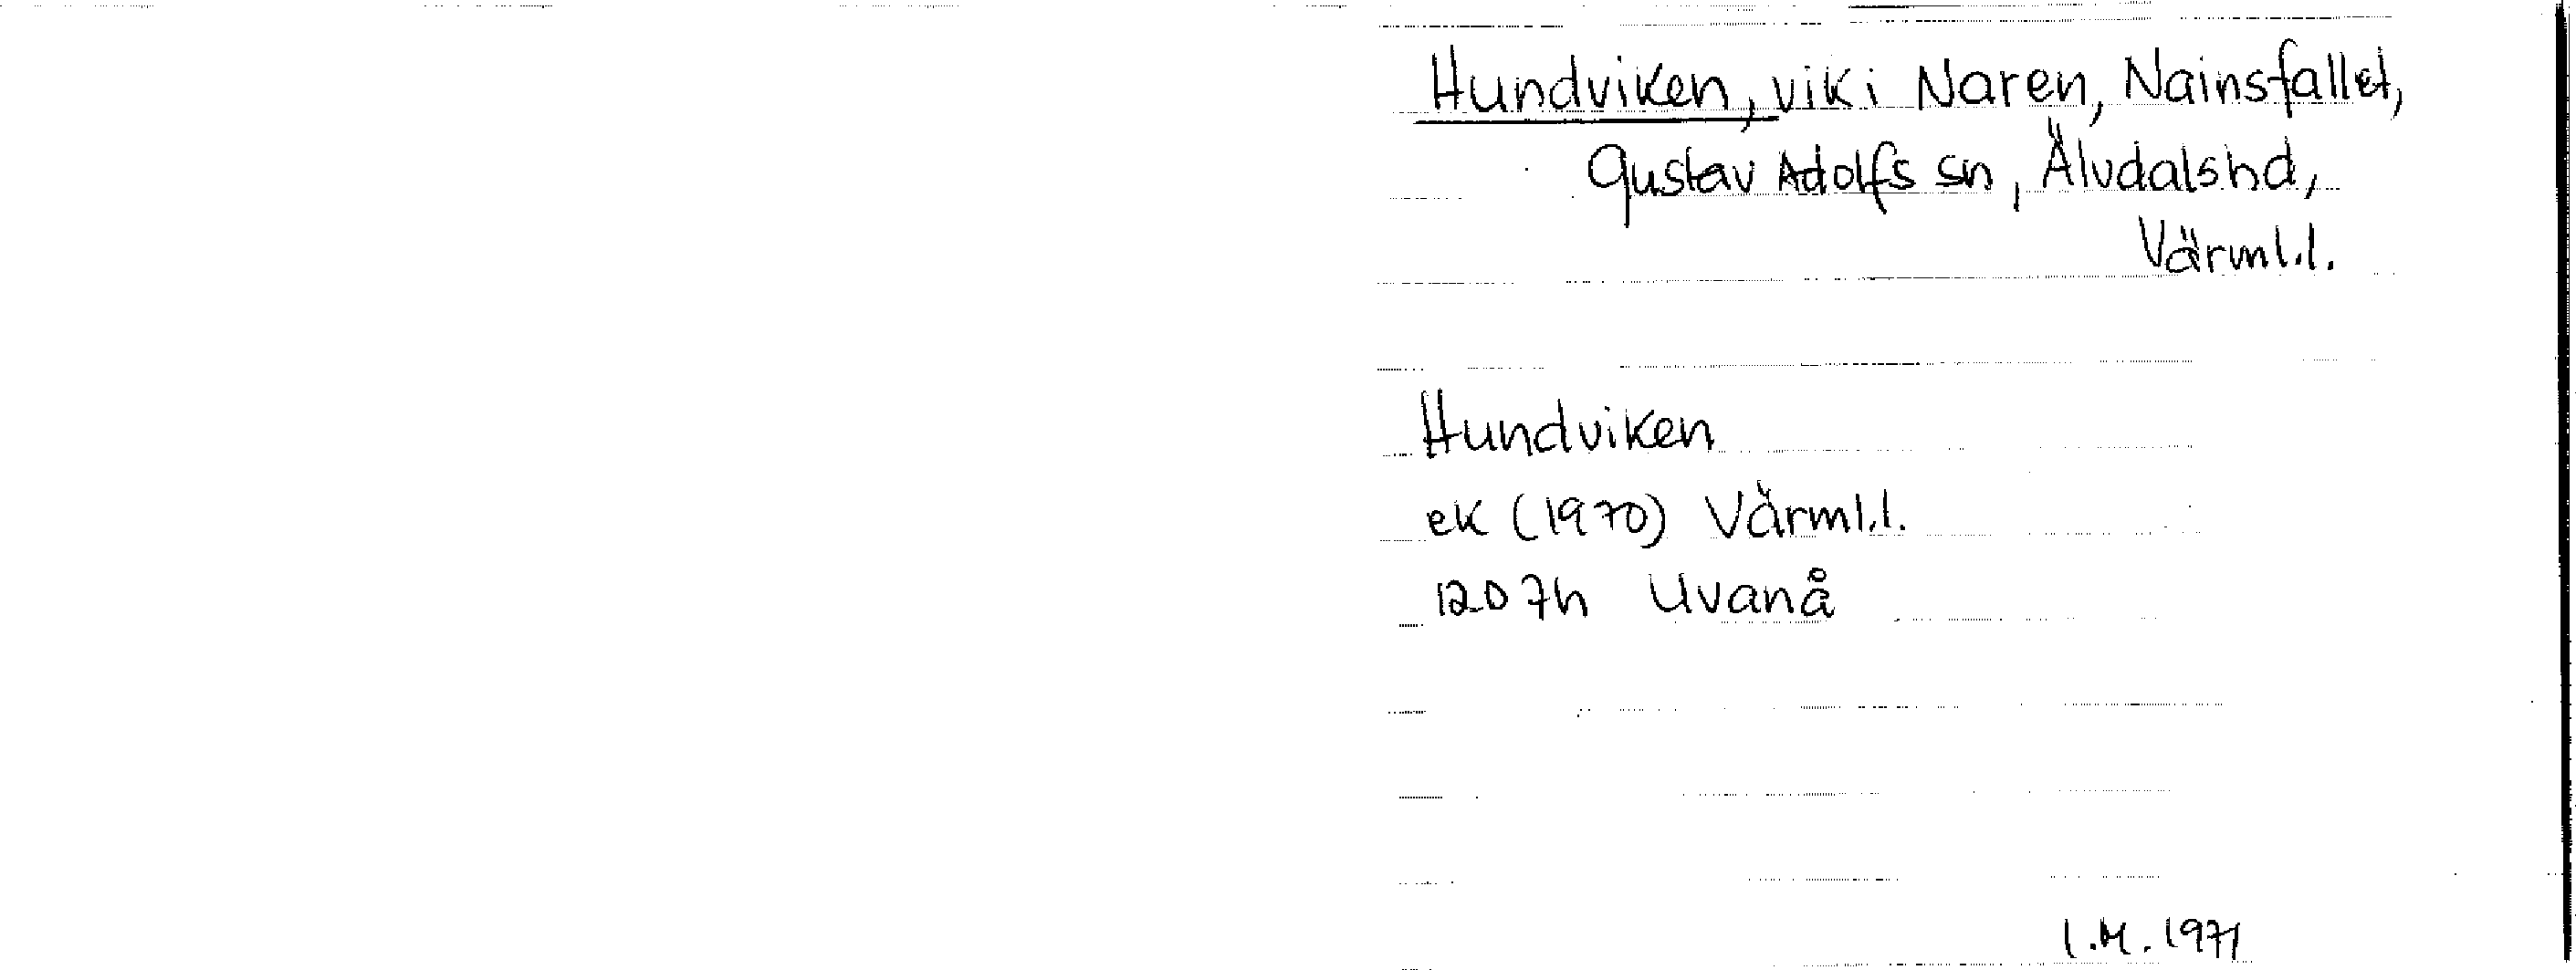 Hundviken, vik i Naren, Nainsfallet,
Gustav Adolfs sn, Älvdals hd,
Värml.l.
Hundviken
ek (1970) Värml.l.
12D 7h Uvanå
I.M. 1971